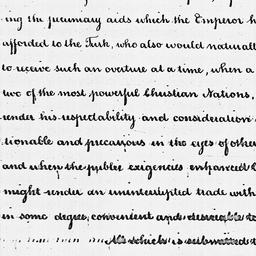 ing the pecuniary aids which the Emperor h
afforded to the Turk, who also would naturall
to receive such an overture at a time, when a
two of the most powerful Christian Nations,
render his respectability and consideration
tionable and precarious in the eyes of other
and when the public exigencies enhanced
might render an uninterrupted trade with
in some degree, convenient and desirable to
All which is submitted t